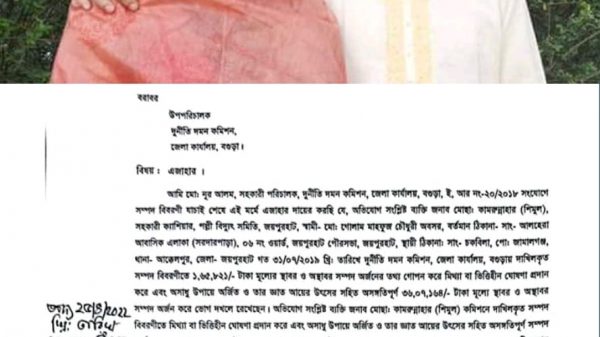 বরাবর
উপপরিচালক
দুর্নীতি দমন কমিশন,
জেলা কার্যালয়, বগুড়া।
বিষয় : এজাহার ।
আমি মো: নূর আলম, সহকারী পরিচালক, দুর্নীতি দমন কমিশন, জেলা কার্যালয়, বগুড়া, ই, আর নং-২০/২০১৮ সংযোগে
সম্পদ বিবরণী যাচাই শেষে এই মর্মে এজাহার দায়ের করছি যে, অভিযোগ সংশ্লিষ্ট ব্যক্তি জনাব মোছা: কামরুন্নাহার (শিমুল),
সহকারী ক্যাশিয়ার, পল্লী বিদ্যুৎ সমিতি, জয়পুরহাট, স্বামী- মো: গোলাম মাহফুজ চৌধুরী অবসর, বর্তমান ঠিকানা: সাং- আলহেরা
আবাসিক এলাকা (সরদারপাড়া), ০৬ নং ওয়ার্ড, জয়পুরহাট পৌরসভা, জয়পুরহাট, স্থায়ী ঠিকানা: সাং- চকবিলা, পো: জামালগঞ্জ,
থানা- আক্কেলপুর, জেলা- জয়পুরহাট গত ৩১/০৭/২০১৯ খ্রি: তারিখে দুর্নীতি দমন কমিশন, জেলা কার্যালয়, বগুড়ায় দাখিলকৃত
সম্পদ বিবরণীতে ১,৬৫,৮২১/- টাকা মূল্যের স্থাবর ও অস্থাবর সম্পদ অর্জনের তথ্য গোপন করে মিথ্যা বা ভিত্তিহীন ঘোষণা প্রদান
করে এবং অসাধু উপায়ে অর্জিত ও তার জ্ঞাত আয়ের উৎসের সহিত অসঙ্গতিপূর্ণ ৩৬,০৭,১৬৪/- টাকা মূল্যের স্থাবর ও অস্থাবর
সম্পদ অর্জন করে ভোগ দখলে রেখেছেন। অভিযোগ সংশ্লিষ্ট মোছা: কামরুন্নাহার (শিমুল) কমিশনে দাখিলকৃত সম্পদ
বিবরণীতে মিথ্যা বা ভিত্তিহীন ঘোষণা প্রদান করে এবং অসাধু উপায়ে অর্জিত ও তার জ্ঞাত আয়ের উৎসের সহিত অসঙ্গতিপূর্ণ সম্পদ